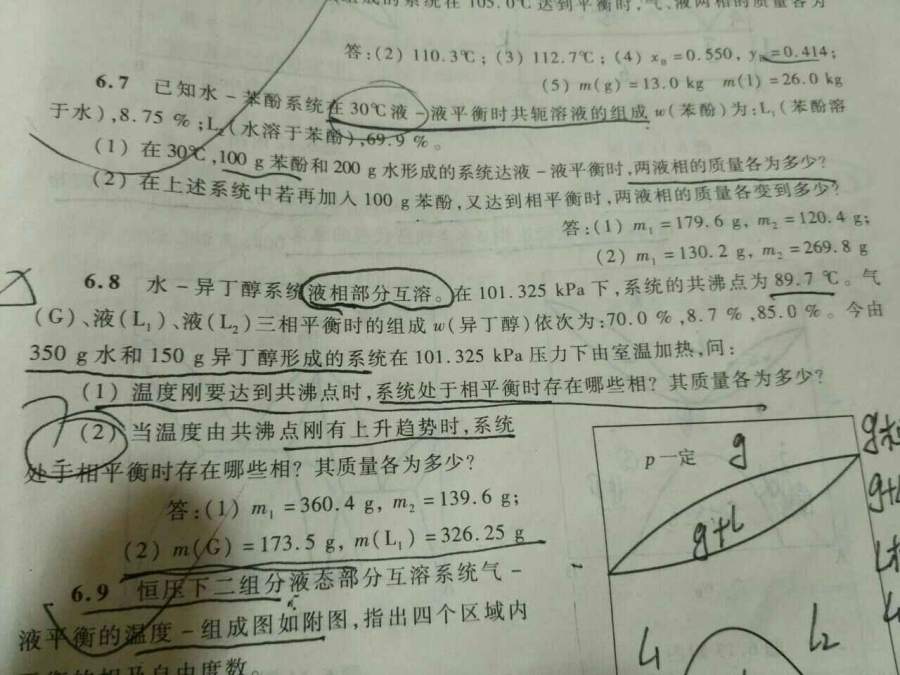 组成的系统在 105.0℃ 达到平衡时,气、液两相的质量各为
答:(2) 110.3℃; (3) 112.7℃; (4) xB=0.550, yB=0.414;
(5) m(g)=13.0 kg m(l)=26.0 kg
6.7 已知水-苯酚系统在30℃液-液平衡时共轭溶液的组成 w(苯酚)为:L₁(苯酚溶
于水),8.75 %;L₂(水溶于苯酚),69.9 %。
(1) 在30℃,100 g苯酚和200 g水形成的系统达液-液平衡时,两液相的质量各为多少?
(2) 在上述系统中若再加入100 g苯酚,又达到相平衡时,两液相的质量各变到多少?
答:(1) m₁=179.6 g, m₂=120.4 g;
(2) m₁=130.2 g, m₂=269.8 g
6.8 水-异丁醇系统液相部分互溶。在101.325 kPa下,系统的共沸点为89.7 ℃。气
(G)、液(L₁)、液(L₂)三相平衡时的组成 w(异丁醇)依次为:70.0 %,8.7 %,85.0 %。今由
350 g水和150 g异丁醇形成的系统在101.325 kPa压力下由室温加热,问:
(1) 温度刚要达到共沸点时,系统处于相平衡时存在哪些相? 其质量各为多少?
(2) 当温度由共沸点刚有上升趋势时,系统
处于相平衡时存在哪些相? 其质量各为多少?
答:(1) m₁=360.4 g, m₂=139.6 g;
(2) m(G)=173.5 g, m(L₁)=326.25 g
6.9 恒压下二组分液态部分互溶系统气-
液平衡的温度-组成图如附图,指出四个区域内
平衡的相及自由度数。
p一定
g
g+l
L₁
L₂